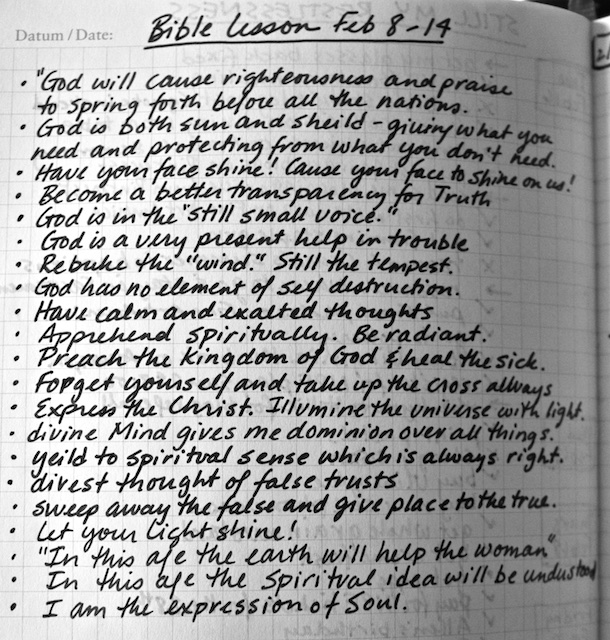 Datum / Date: Bible Lesson Feb 8-14
• "God will cause righteousness and praise
to spring forth before all the nations.
• God is both sun and sheild - giving what you
need and protecting from what you don't need.
• Have your face shine! Cause your face to shine on us!
• Become a better transparency for Truth
• God is in the "still small voice."
• God is a very present help in trouble
• Rebuke the "wind." Still the tempest.
• God has no element of self destruction.
• Have calm and exalted thoughts
• Apprehend spiritually. Be radiant.
• Preach the Kingdom of God & heal the sick.
• Forget yourself and take up the cross always
• Express the Christ. Illumine the universe with light.
• divine Mind gives me dominion over all things.
• yeild to spiritual sense which is always right.
• divest thought of false trusts
• sweep away the false and give place to the true.
• Let your Light shine!
• "In this age the earth will help the woman"
• In this age the Spiritual idea will be understood
• I am the expression of Soul.